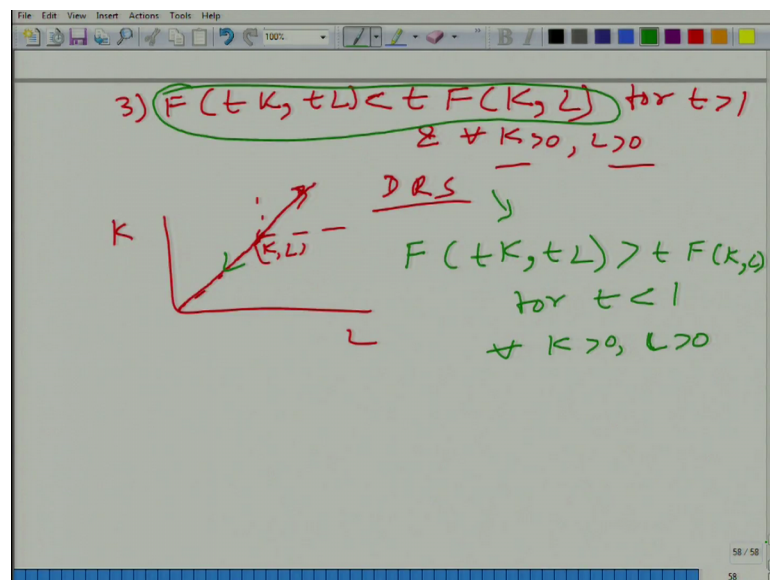 File Edit View Insert Actions Tools Help
100%
B I
3) F(tK, tL) < t F(K, L) for t > 1
& ∀ K > 0, L > 0
DRS
K
(K, L)
L
F(tK, tL) > t F(K, L)
for t < 1
∀ K > 0, L > 0
58 / 58
58